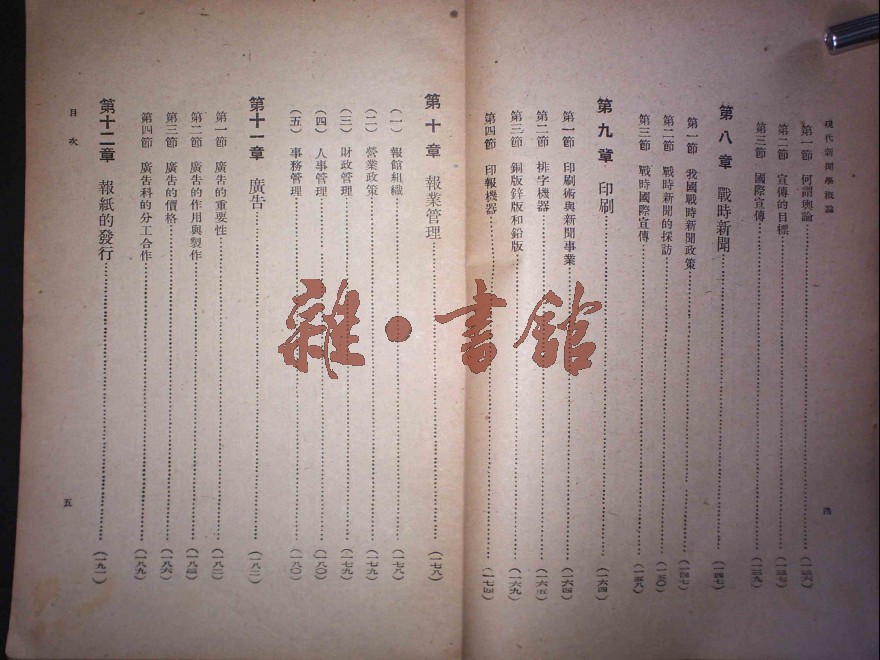 現代新聞學概論
第一節 何謂輿論
第二節 宣傳的目標
第三節 國際宣傳……(一三九)
第八章 戰時新聞……(一四七)
第一節 我國戰時新聞政策……(一四七)
第二節 戰時新聞的採訪……(一五〇)
第三節 戰時國際宣傳……(一五八)
第九章 印刷……(一六四)
第一節 印刷術與新聞事業……(一六四)
第二節 排字機器……(一六五)
第三節 銅版鋅版和鉛版……(一六九)
第四節 印報機器……(一七四)
四
第十章 報業管理……(一七八)
(一) 報館組織……(一七八)
(二) 營業政策……(一七九)
(三) 財政管理……(一七九)
(四) 人事管理……(一八〇)
(五) 事務管理……(一八〇)
第十一章 廣告……(一八二)
第一節 廣告的重要性……(一八二)
第二節 廣告的作用與製作……(一八四)
第三節 廣告的價格……(一八六)
第四節 廣告科的分工合作……(一八九)
第十二章 報紙的發行……(一九一)
目次
五
雜·書館